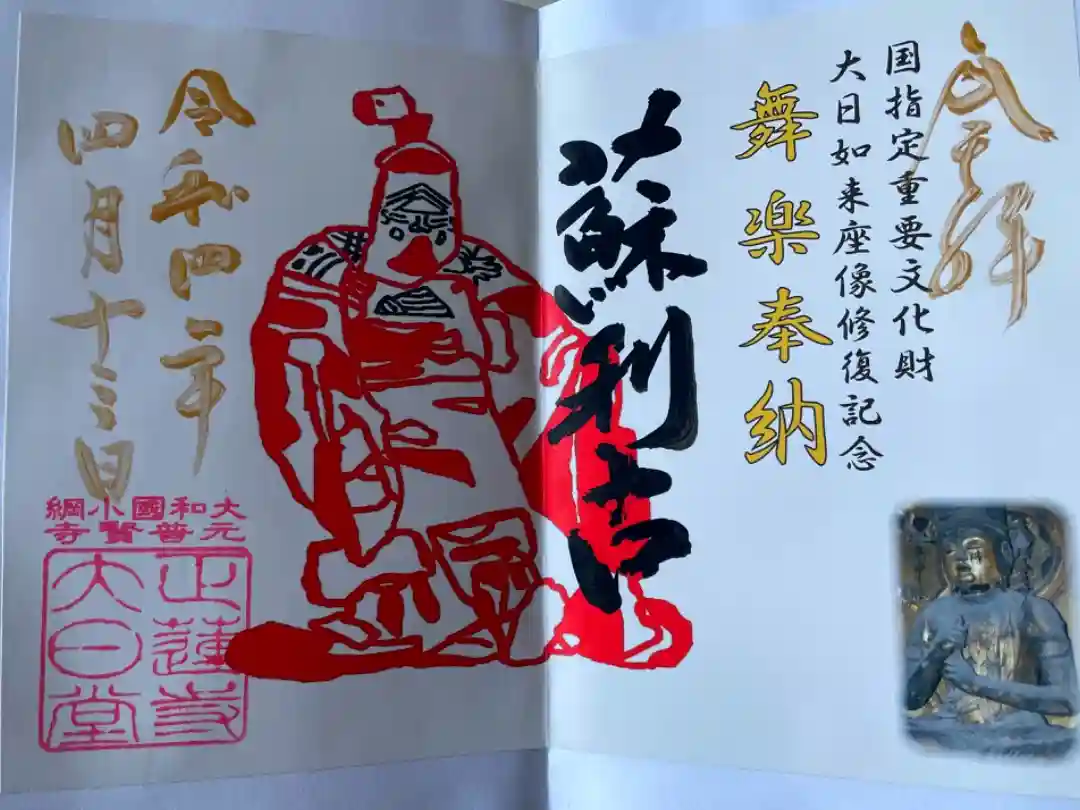 奉拝
国指定重要文化財
大日如来座像修復記念
舞楽奉納
蘇利古
令和四年
四月十三日
大和國小綱
元普賢寺
正蓮寺
大日堂